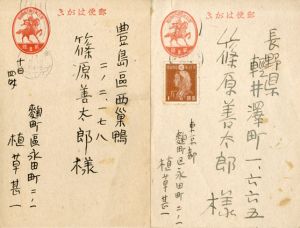 郵便はがき
豊島區西巣鴨
二ノ二一七八
篠原善太郎様
十日
麹町區永田町二ノ一
植草甚一
郵便はがき
長野県
軽井澤町一、六六五
篠原善太郎様
東京都
麹町区永田町二ノ一
植草甚一